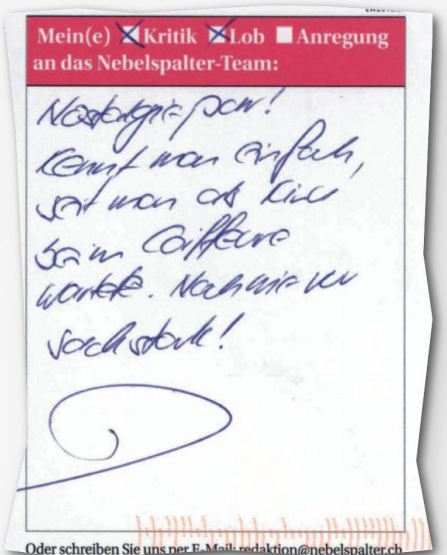 Mein(e) Kritik Lob Anregung
an das Nebelspalter-Team:
Nostalgie pur!
Kennt man einfach,
seit man als Kind
beim Coiffeure
wartete. Nach wie vor
saustark!
Oder schreiben Sie uns per E-Mail: redaktion@nebelspalter.ch